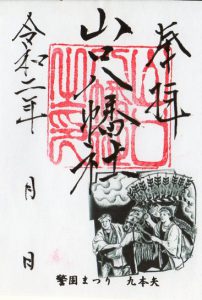 奉拝
山口八幡社
令和二年
月
日
警固まつり 九本矢